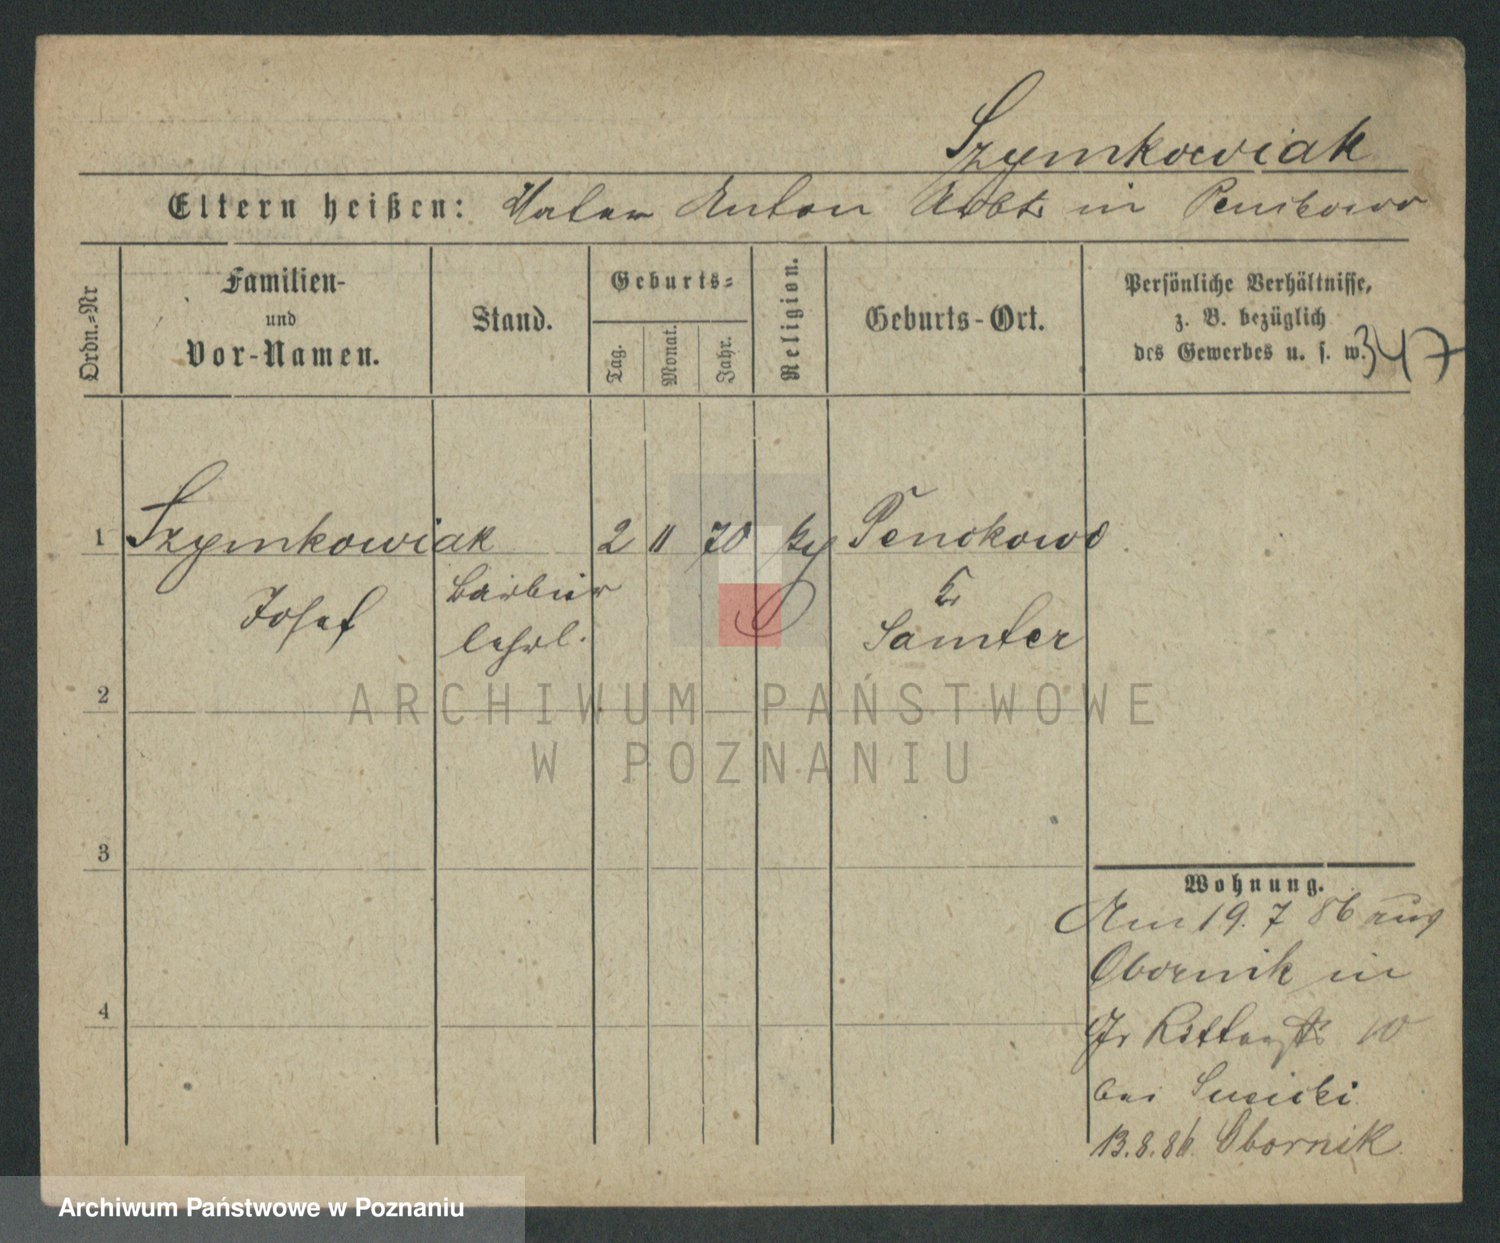 Szymkowiak
Eltern heißen: Vater Anton Arbtr in Penckowo
Ordn.=Nr
Familien-
und
Vor-Namen.
Stand.
Geburts=
Tag.
Monat.
Jahr.
Religion.
Geburts-Ort.
Persönliche Verhältnisse,
z. B. bezüglich
des Gewerbes u. s. w.
347
1 Szymkowiak 2 11 70 Penckowo
Josef Barbier Kr
lehrl. Samter
2
ARCHIWUM PAŃSTWOWE
W POZNANIU
3
Wohnung.
Am 19. 7 86 aus
Obornik in
Gr Ritterstr 10
bei Susicki
4
13.8.86. Obornik
Archiwum Państwowe w Poznaniu